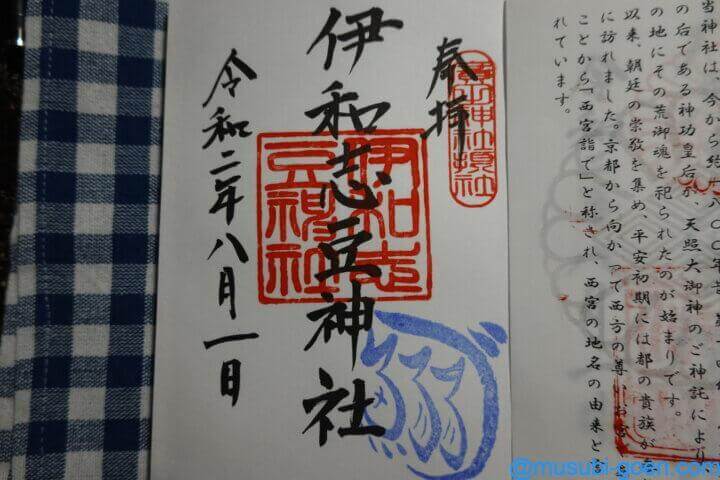 当神社は、今から
の后である神功皇后が、天照大御神のご神託により
の地にその荒御魂を祀られたのが始まりです。
以来、朝廷の崇敬を集め、平安初期には都の貴族が
に訪れました。京都から向かって西方の尊いお宮
ことから「西宮詣で」と称され、西宮の地名の由来と
れています。
奉拝
伊和志豆神社
伊和志
豆神社
令和二年八月一日
@musubi-goen.com